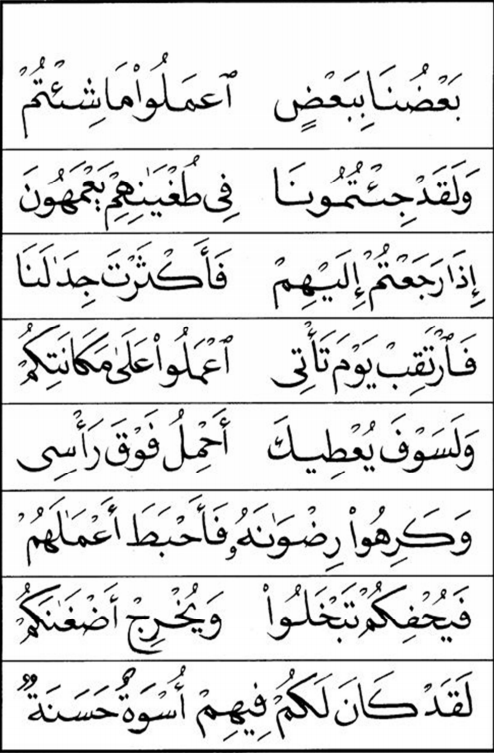 بَعْضُنَا بِبَعْضٍ ٱعْمَلُوا۟ مَا شِئْتُمْ
وَلَقَدْ جِئْتُمُونَا فِى طُغْيَٰنِهِمْ يَعْمَهُونَ
إِذَا رَجَعْتُمْ إِلَيْهِمْ فَأَكْثَرْتَ جِدَٰلَنَا
فَٱرْتَقِبْ يَوْمَ تَأْتِى ٱعْمَلُوا۟ عَلَىٰ مَكَانَتِكُمْ
وَلَسَوْفَ يُعْطِيكَ أَحْمِلُ فَوْقَ رَأْسِى
وَكَرِهُوا۟ رِضْوَٰنَهُۥ فَأَحْبَطَ أَعْمَٰلَهُمْ
فَيُحْفِكُمْ تَبْخَلُوا۟ وَيُخْرِجْ أَضْغَٰنَكُمْ
لَقَدْ كَانَ لَكُمْ فِيهِمْ أُسْوَةٌ حَسَنَةٌ